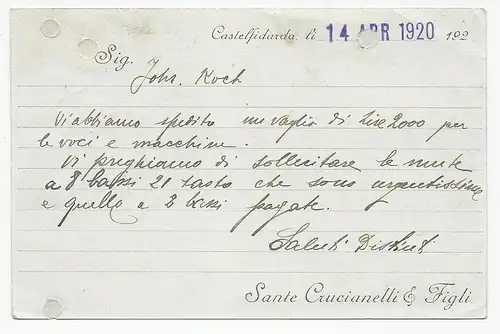 Castelfidardo, li 14 APR 1920 192
Sig. Joh. Koch
Vi abbiamo spedito un vaglia di Lire 2000 per
le voci e macchine.
Vi preghiamo di sollecitare le mute
a 8 bassi 21 tasto che sono urgentissime
e quello a 2 bassi pagate.
Saluti Distinti
Sante Crucianelli & Figli